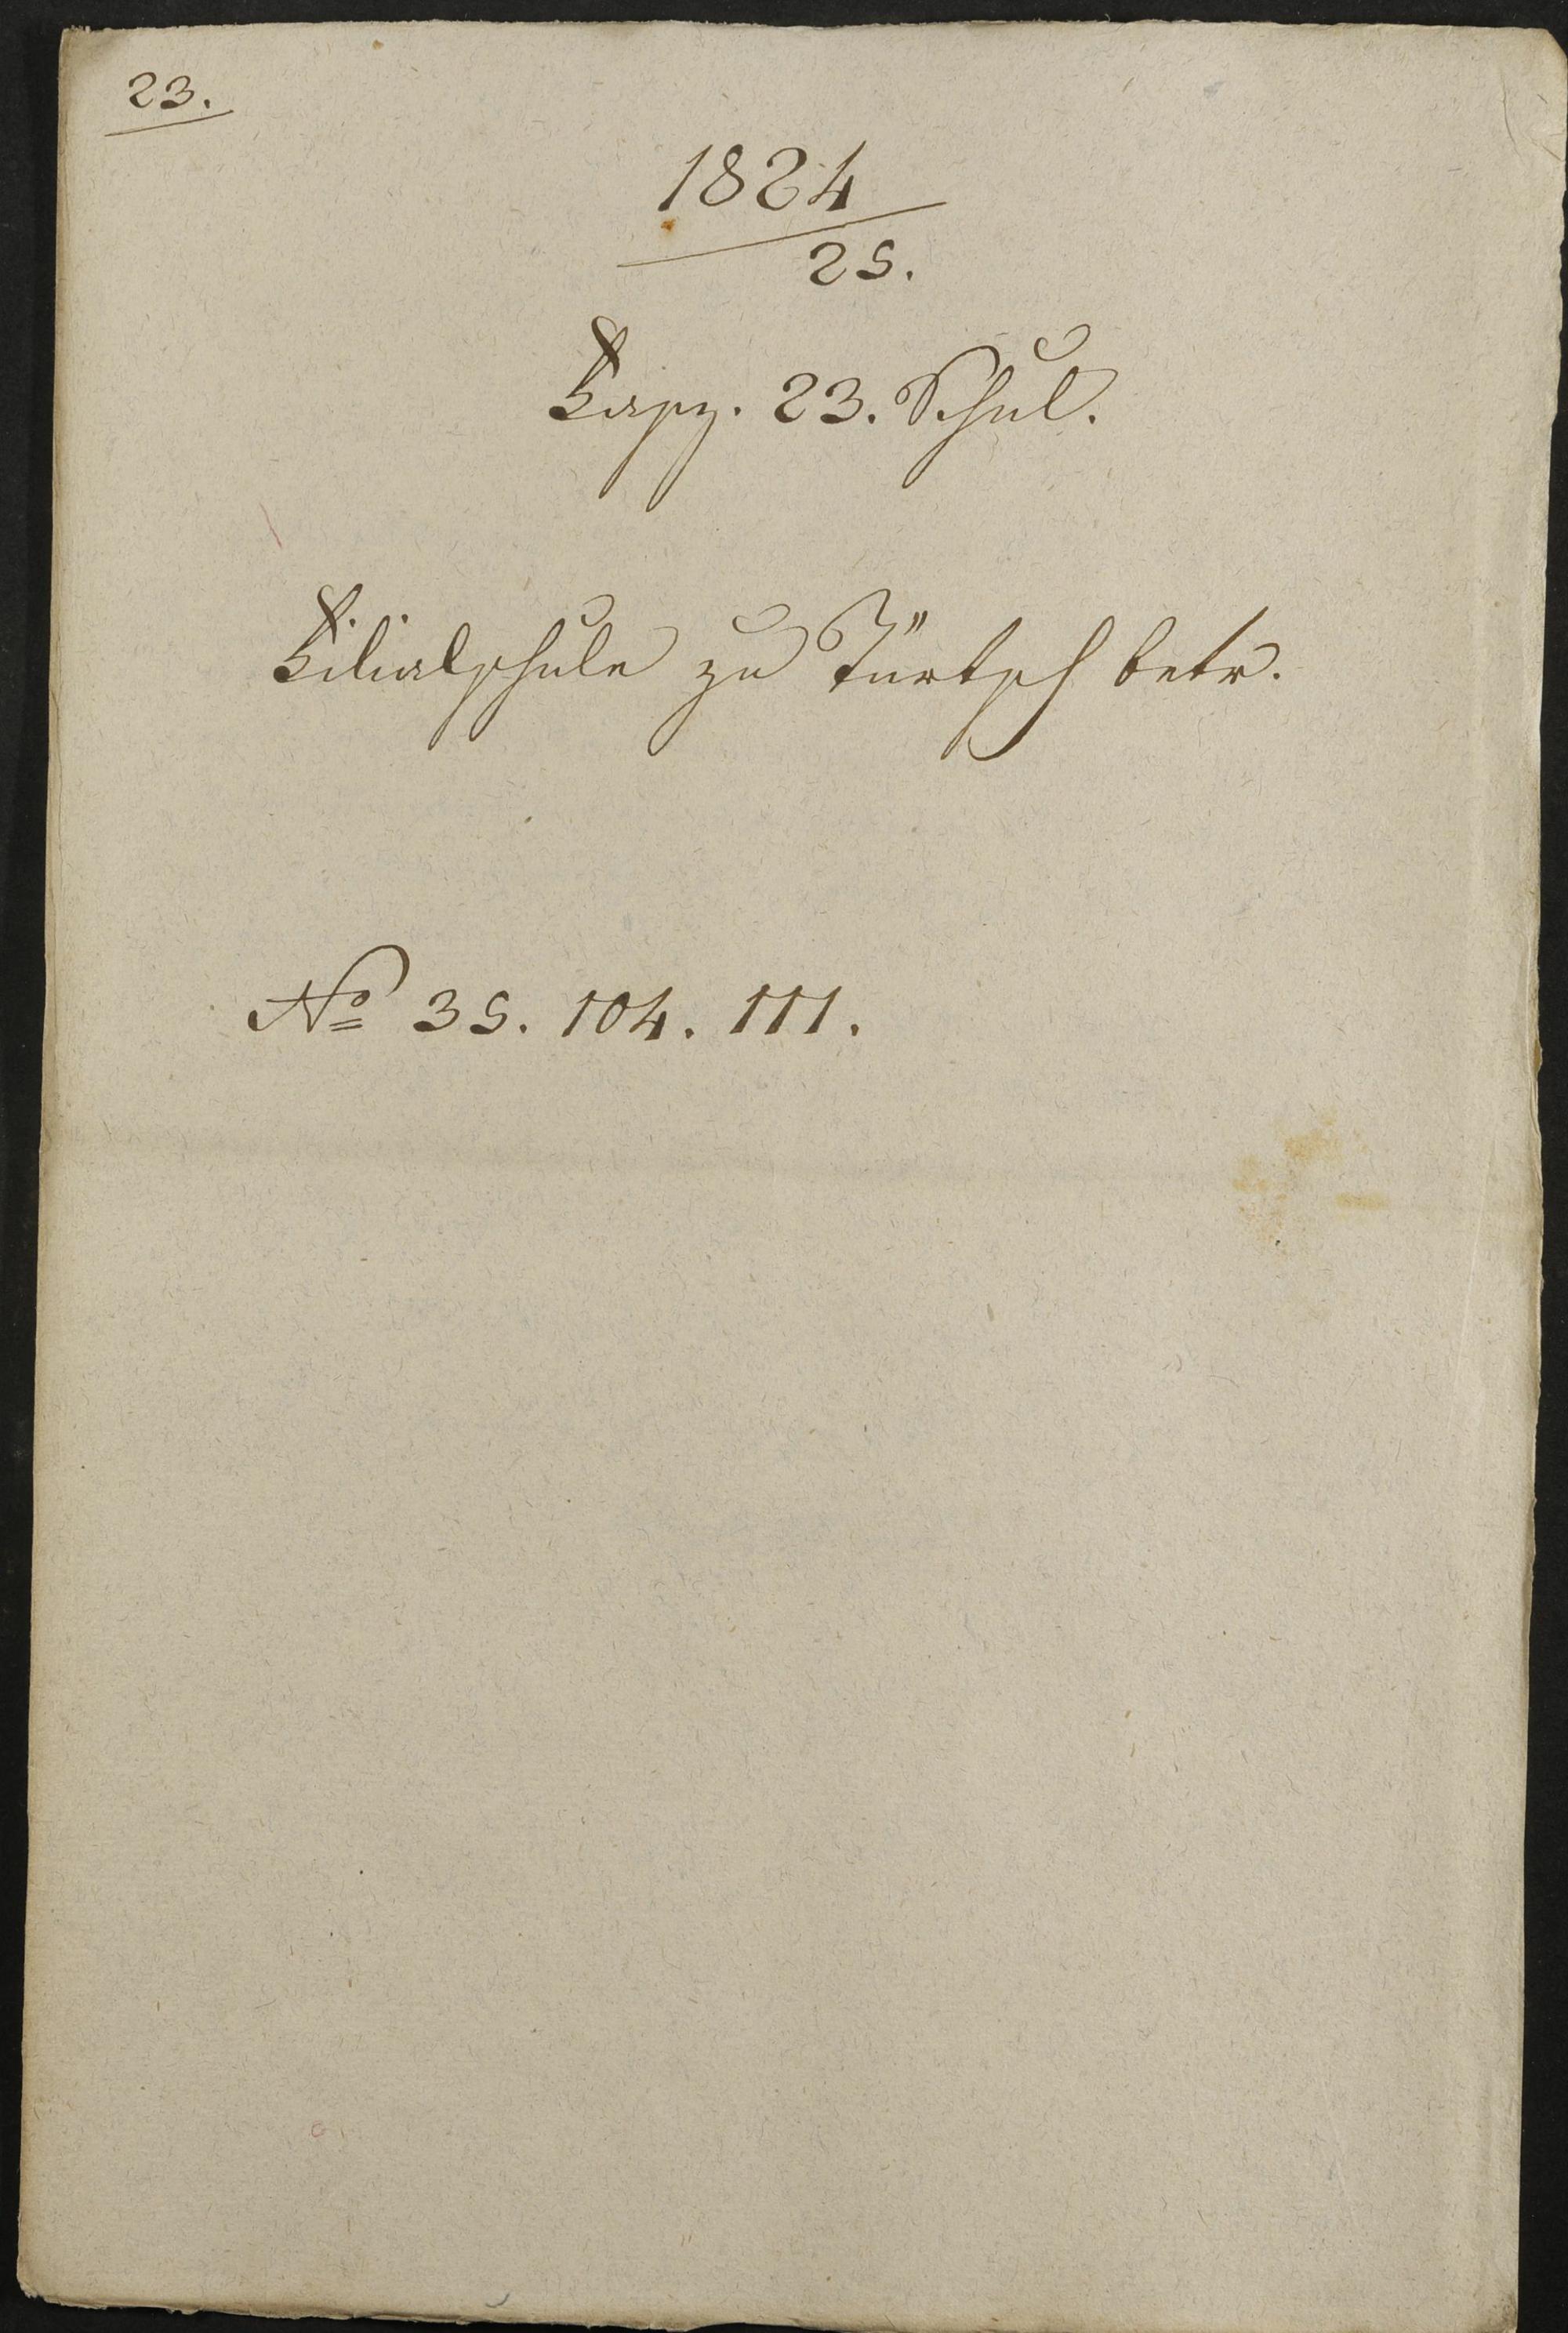 23.
1824
25.
Fasz. 23. Schul.
Filialschule zu Türtsch betr.
No 35. 104. 111.